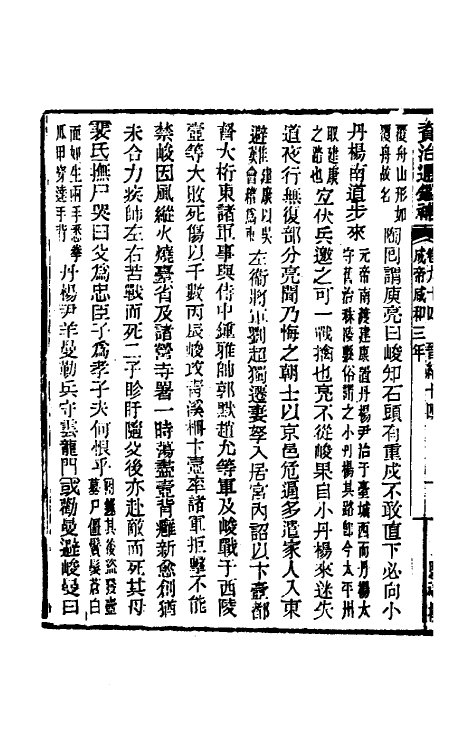 資治通鑑補 卷九十四 晉紀十四
成帝咸和三年
覆舟山形如覆舟故名 陶回謂庾亮曰峻知石頭有重戍不敢直下必向小
丹楊南道步來 元帝南渡建康置丹楊尹治于臺城西而丹楊太守舊治秣陵縣俗謂之小丹楊其路即今太平州
取建康之路也 宜伏兵邀之可一戰擒也亮不從峻果自小丹楊來迷失
道夜行無復部分亮聞乃悔之朝士以京邑危逼多遣家人入東
避難 建康以吳會稽爲東 左衛將軍劉超獨遷妻孥入居宮內詔以卞壼都
督大桁東諸軍事與侍中鍾雅帥郭默趙允等軍及峻戰于西陵
壼等大敗死傷以千數丙辰峻攻青溪柵卞壼率諸軍拒擊不能
禁峻因風縱火燒臺省及諸營寺署一時蕩盡壼背癰新愈創猶
未合力疾帥左右苦戰而死二子眕盱隨父後亦赴敵而死其母
裴氏撫尸哭曰父爲忠臣子爲孝子夫何恨乎 其後盜發壼墓尸僵鬢髮蒼白
面如生兩手悉拳爪甲穿達手背 丹楊尹羊曼勒兵守雲龍門或勸曼避峻曼曰